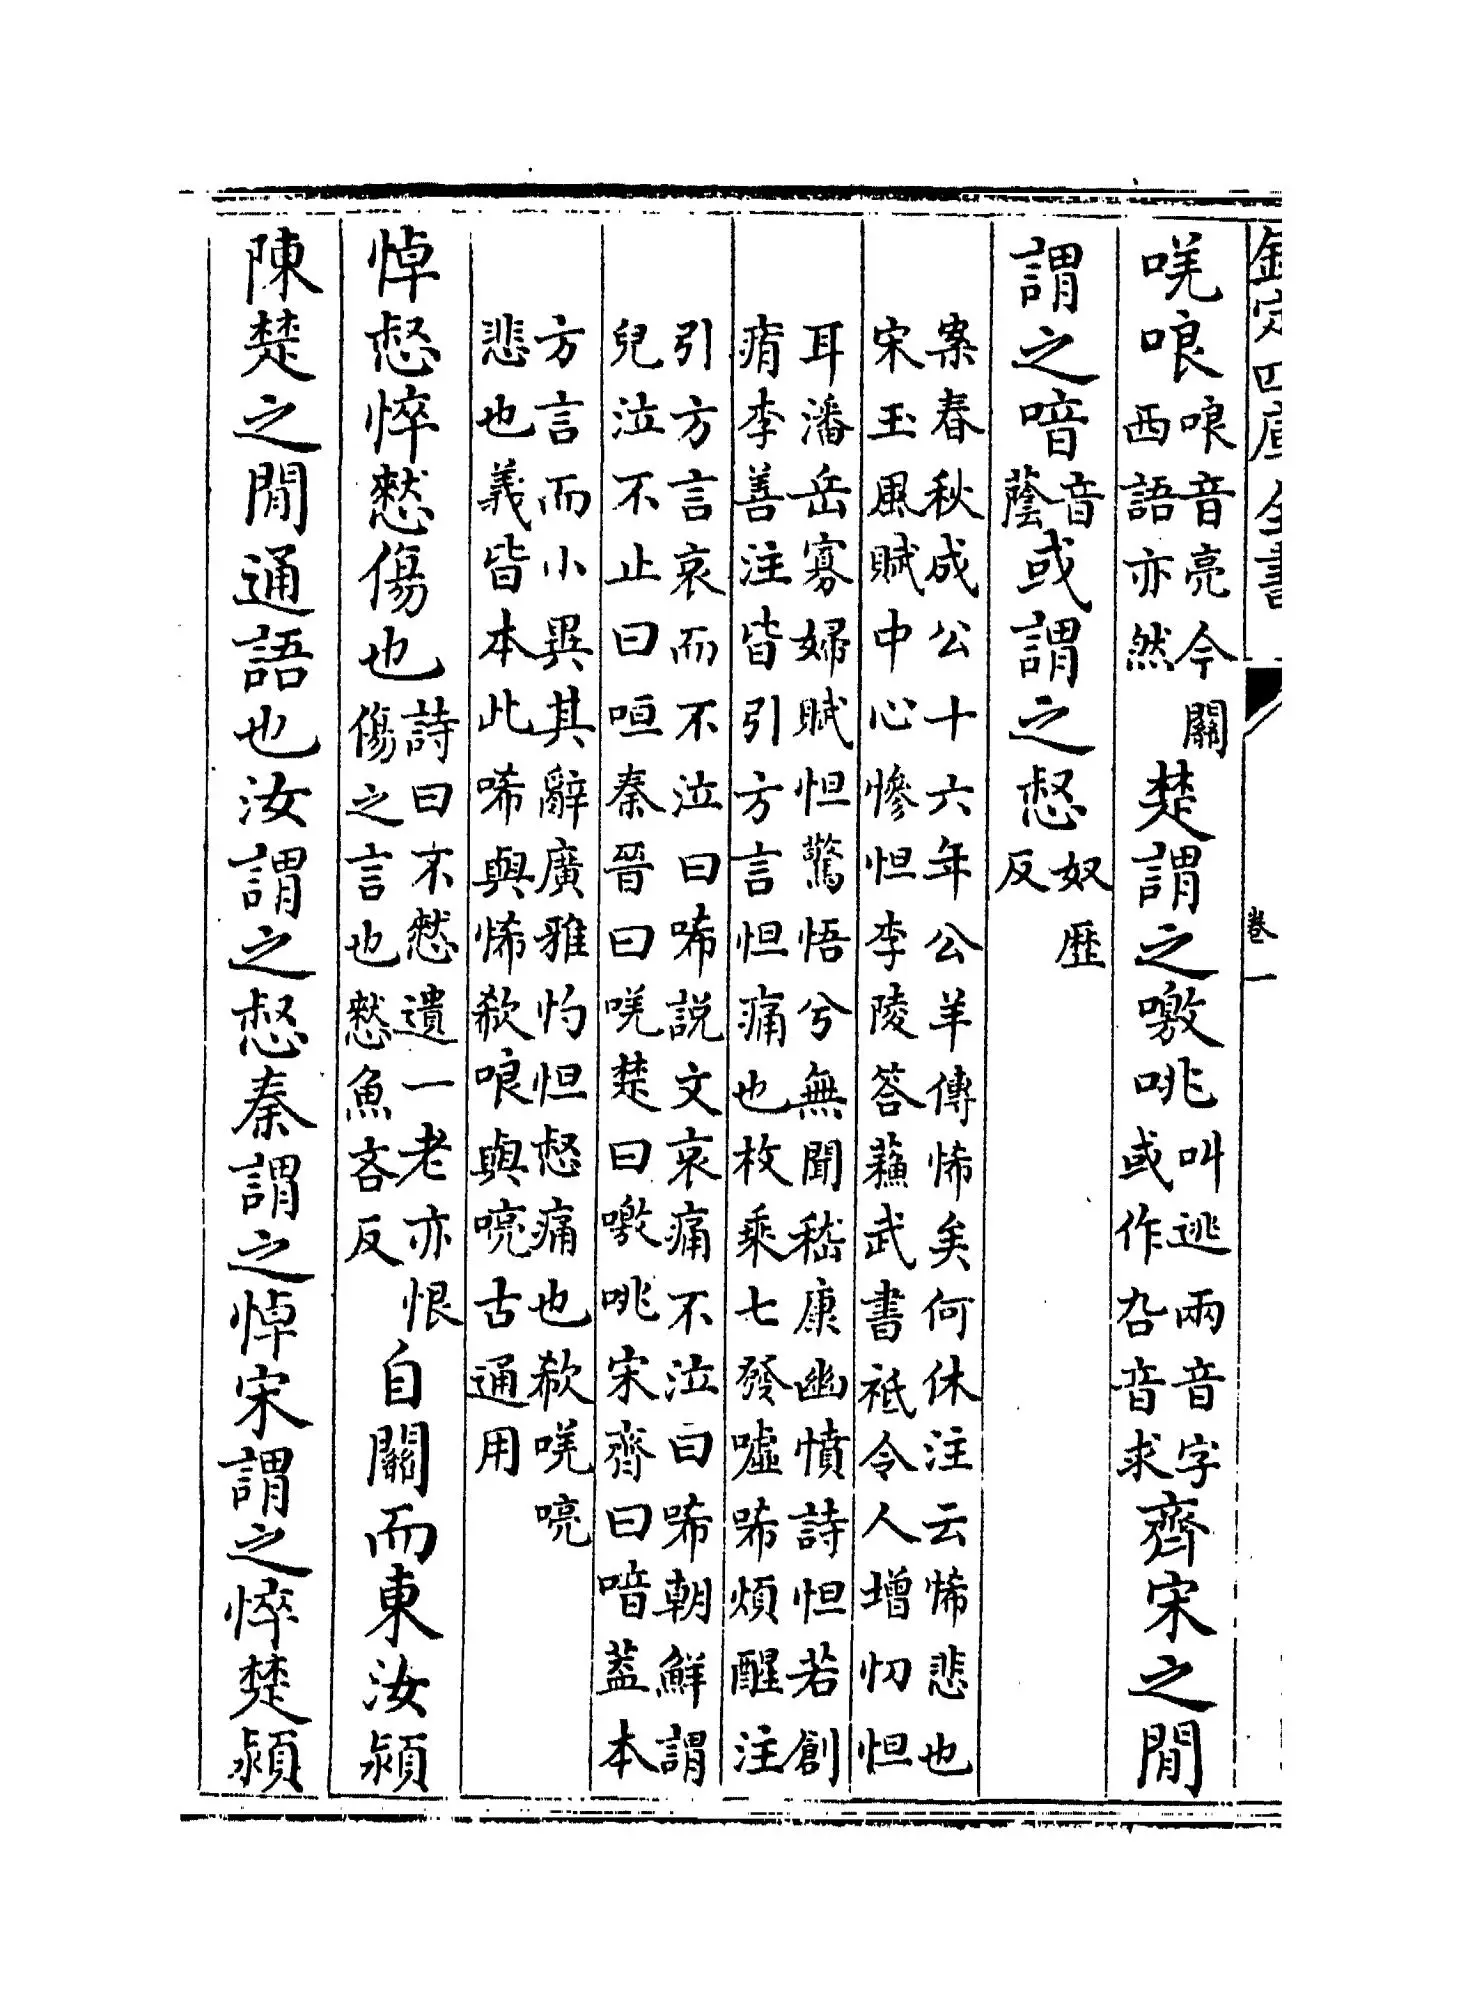 欽定四庫全書
卷一
唴哴
哴音亮今關
西語亦然
楚謂之噭咷
叫逃兩音字
或作叴音求
齊宋之閒
謂之喑
音
蔭
或謂之惄
奴歷
反
案春秋成公十六年公羊傳悕矣何休注云悕悲也
宋玉風賦中心慘怛李陵答蘇武書祗令人增忉怛
耳潘岳寡婦賦怛驚悟兮無聞嵇康幽憤詩怛若創
痏李善注皆引方言怛痛也枚乘七發噓唏煩酲注
引方言哀而不泣曰唏説文哀痛不泣曰唏朝鮮謂
兒泣不止曰咺秦晉曰唴楚曰噭咷宋齊曰喑葢本
方言而小異其辭廣雅灼怛惄痛也欷唴喨
悲也義皆本此唏與悕欷哴與喨古通用
悼惄悴憖傷也
詩曰不憖遺一老亦恨
傷之言也憖魚吝反
自關而東汝潁
陳楚之閒通語也汝謂之惄秦謂之悼宋謂之悴楚潁